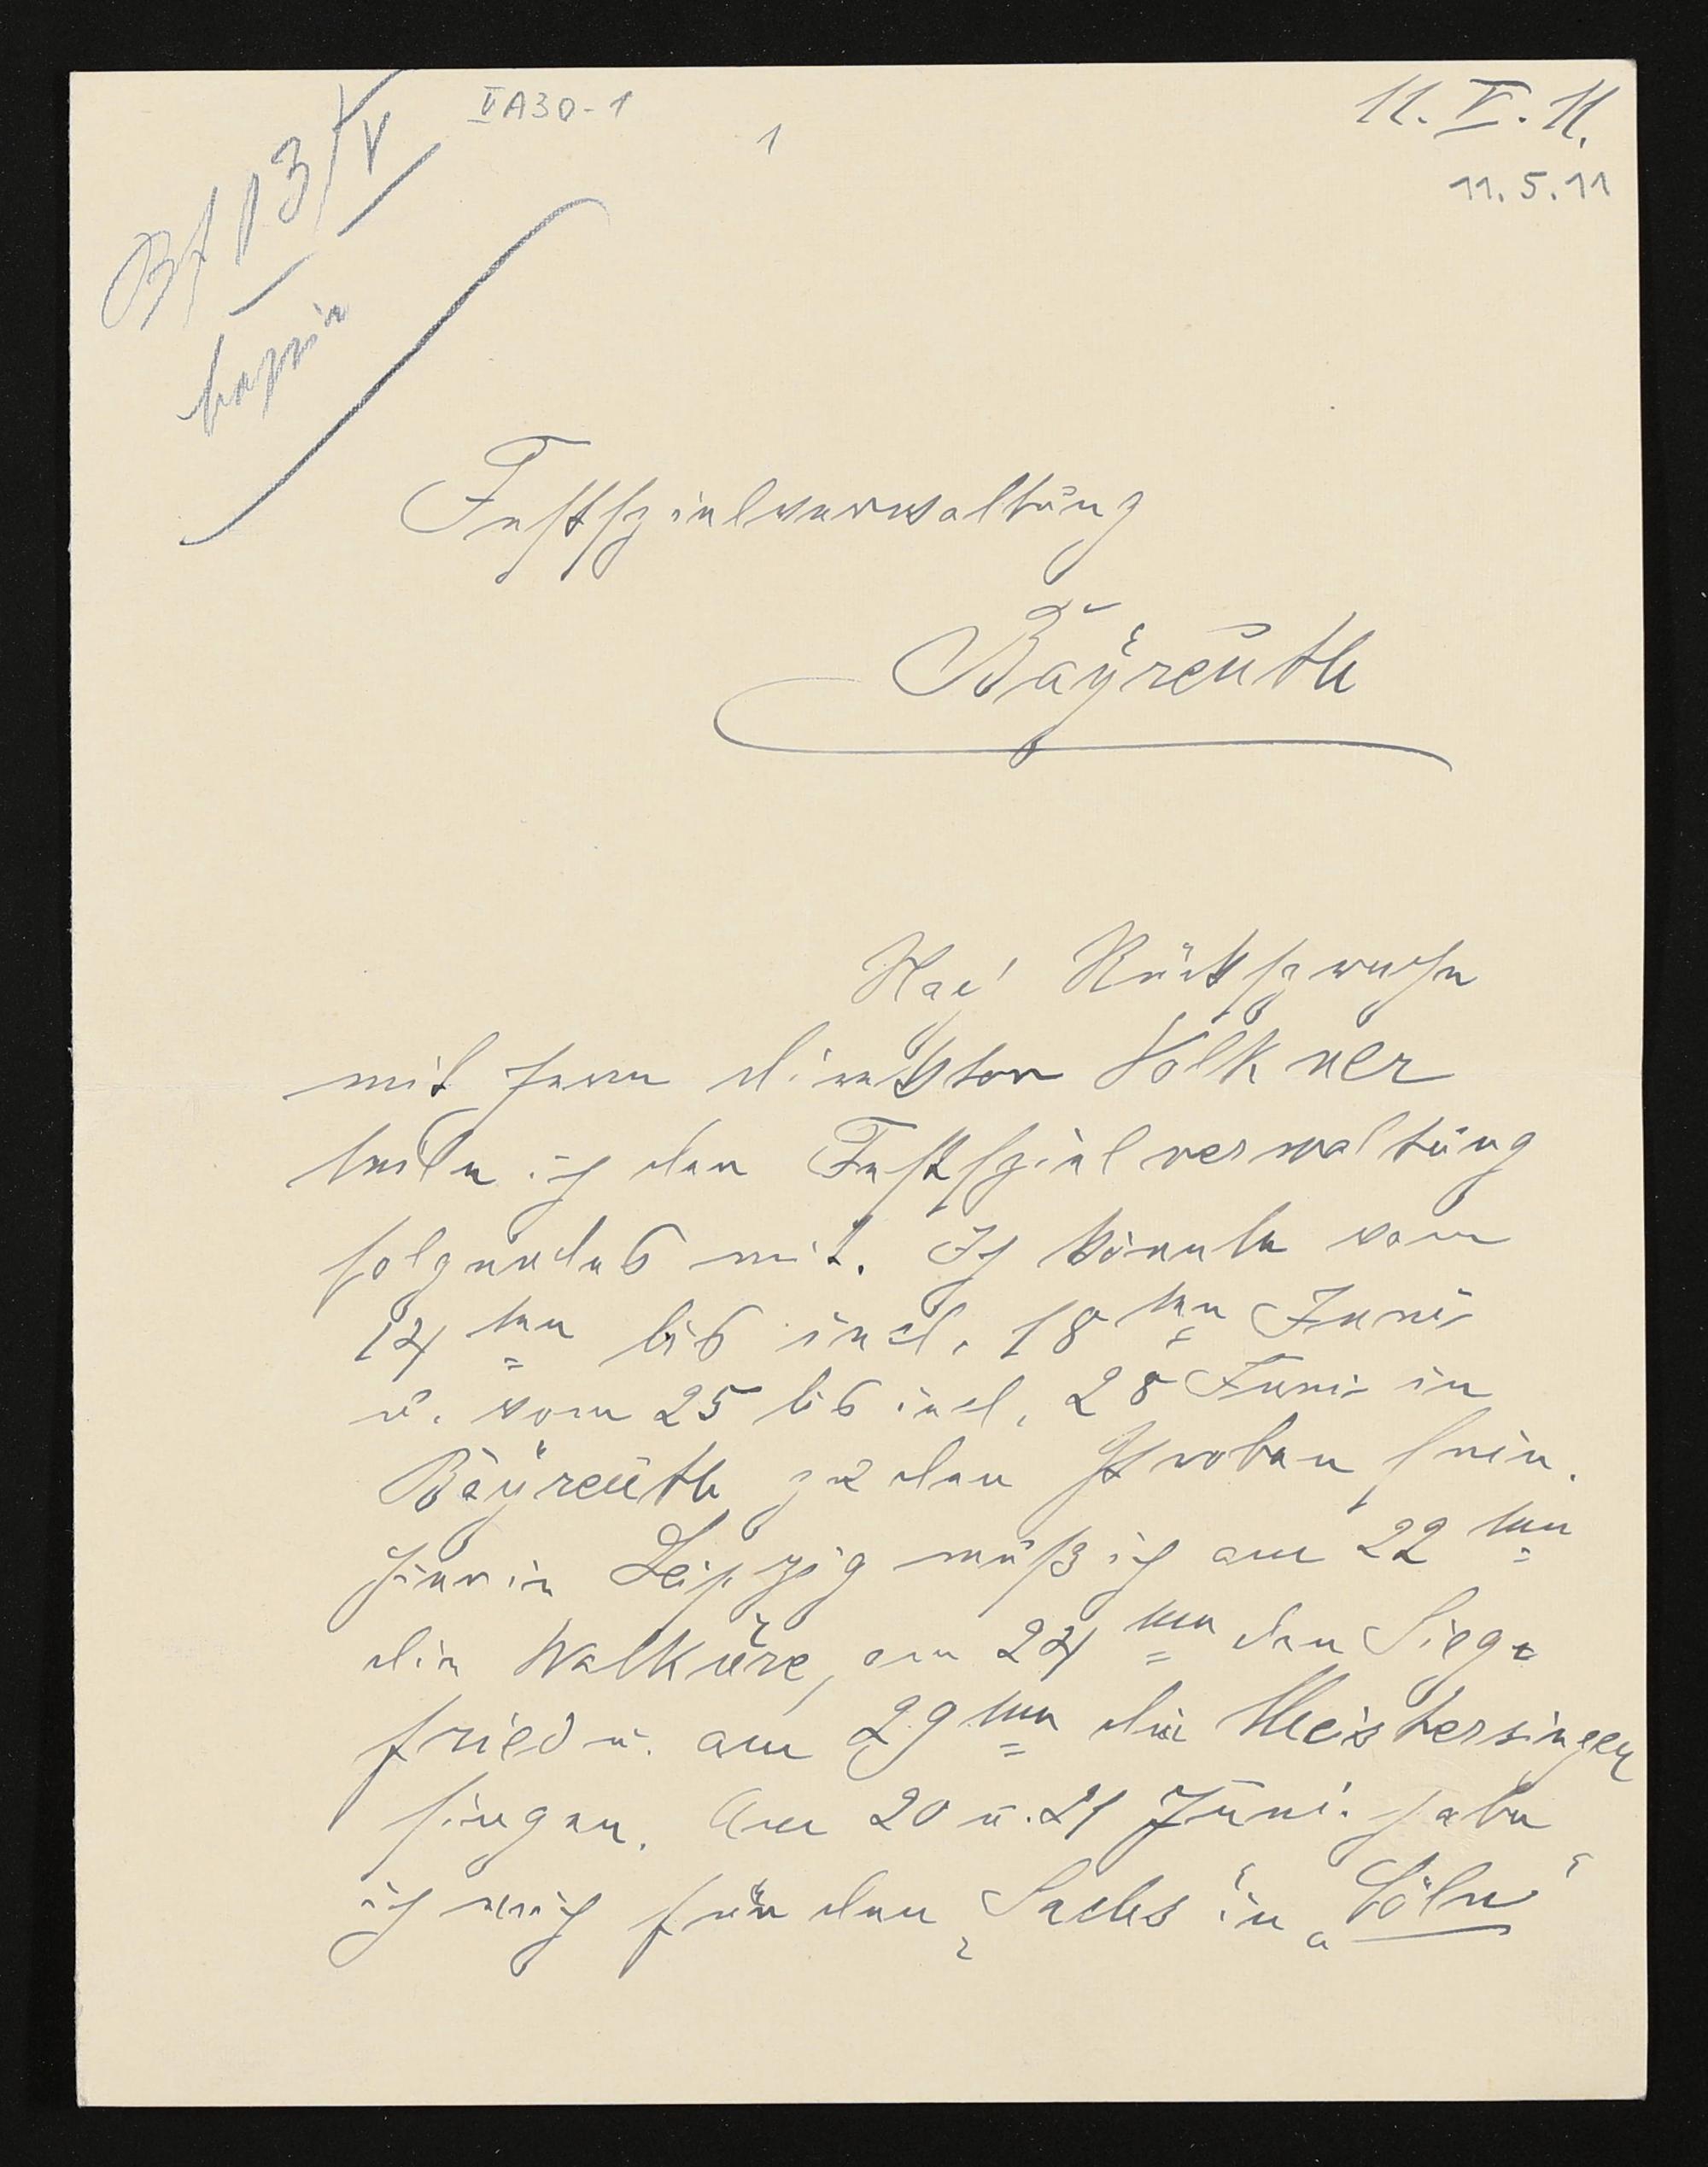 VA30-1
1
11. V. 11.
11.5.11
13/V
Festspielverwaltung
Bayreuth
Nach Rücksprache
mit Herrn Direktor Volkner
teile ich der Festspielverwaltung
folgendes mit. Ich könnte vom
14ten bis incl. 18ten Juni
u. vom 25 bis incl. 28 Juni in
Bayreuth zu den Proben sein.
Hier in Leipzig muß ich am 22ten
die Walküre, am 24ten den Sieg=
fried u. am 29ten die Meistersinger
singen. Am 20 u. 21 Juni habe
ich mich für den „Sachs“ in „Cöln“